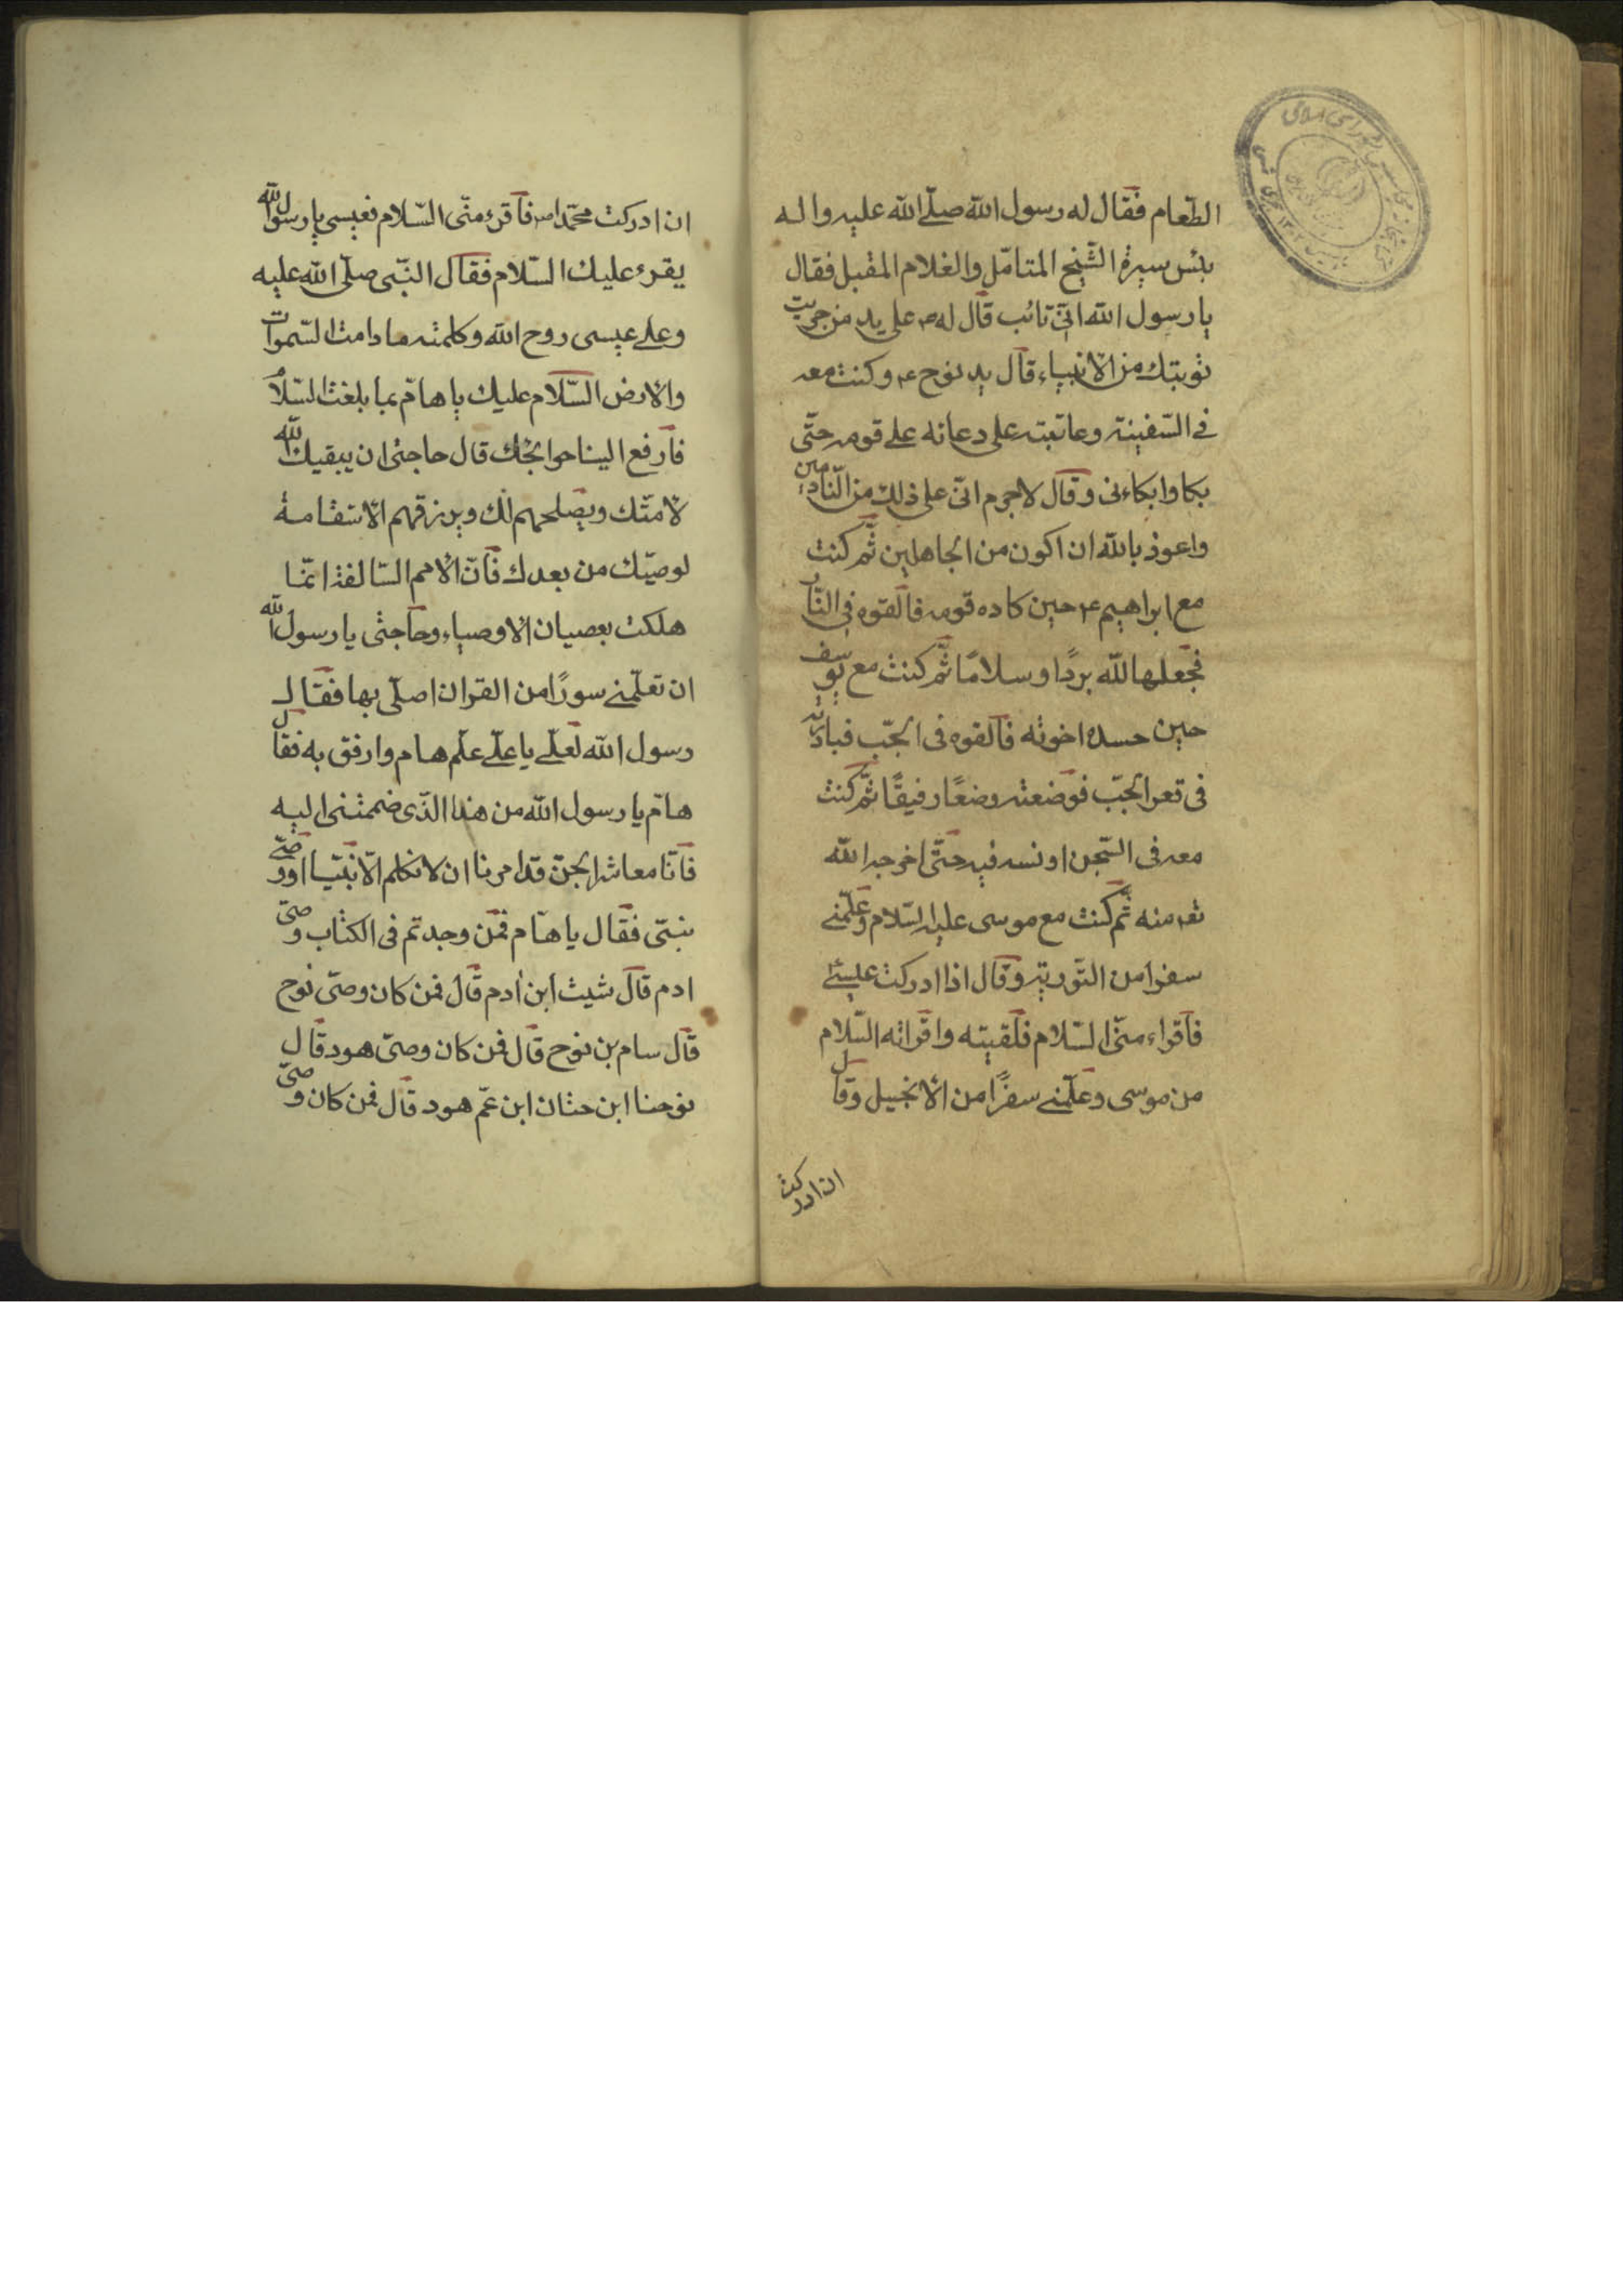 الطّعام فقال له رسول الله صلّى الله عليه واله
بئس سيرة الشّيخ المتامّل والغلام المقبل فقال
يا رسول الله انّى تائب قال له ص على يد من جريت
توبتك من الانبياء قال بيد نوح ع وكنت معه
فى السّفينة وعاتبته على دعائه على قومه حتّى
بكا وابكاءنى وقال لاجرم انّى على ذلك من النّادمين
واعوذ بالله ان اكون من الجاهلين ثمّ كنت
مع ابراهيم ع حين كاده قومه فالقوه فى النّار
فجعلها الله بردًا وسلامًا ثمّ كنت مع يوسف
حين حسده اخوته فالقوه فى الجبّ فبادرته
فى قعر الجبّ فوضعته وضعًا رفيقًا ثمّ كنت
معه فى السّجن اونسه فيه حتّى اخرجه الله
تع منه ثمّ كنت مع موسى عليه السّلام وعلّمنى
سفرا من التّورية وقال اذا ادركت عيسى
فاقراء منّى السّلام فلقيته واقراته السّلام
من موسى وعلّمنى سفرًا من الانجيل وقال
ان ادركت
ان ادركت محمّدا ص فاقرء منّى السّلام فعيسى يا رسول الله
يقرء عليك السّلام فقال النّبى صلّى الله عليه
وعلى عيسى روح الله وكلمته ما دامت السّموات
والارض السّلام عليك يا هامّ بما بلغت السّلام
فارفع الينا حوائجك قال حاجتى ان يبقيك الله
لامّتك ويصلحهم لك ويرزقهم الاستقامة
لوصيّك من بعدك فانّ الامم السّالفة انّما
هلكت بعصيان الاوصياء وحاجتى يا رسول الله
ان تعلّمنى سورًا من القران اصلّى بها فقال
رسول الله لعلى يا على علّم هام وارفق به فقال
هامّ يا رسول الله من هذا الذّى ضممتنى اليه
فانّا معاشر الجنّ قد امرنا ان لا نكلم الّا نبيّا او وصىّ
نبىّ فقال يا هامّ فمن وجدتم فى الكتاب وصىّ
ادم قال شيث ابن ادم قال فمن كان وصىّ نوح
قال سام بن نوح قال فمن كان وصىّ هود قال
يوحنا ابن حنان ابن عمّ هود قال فمن كان وصىّ